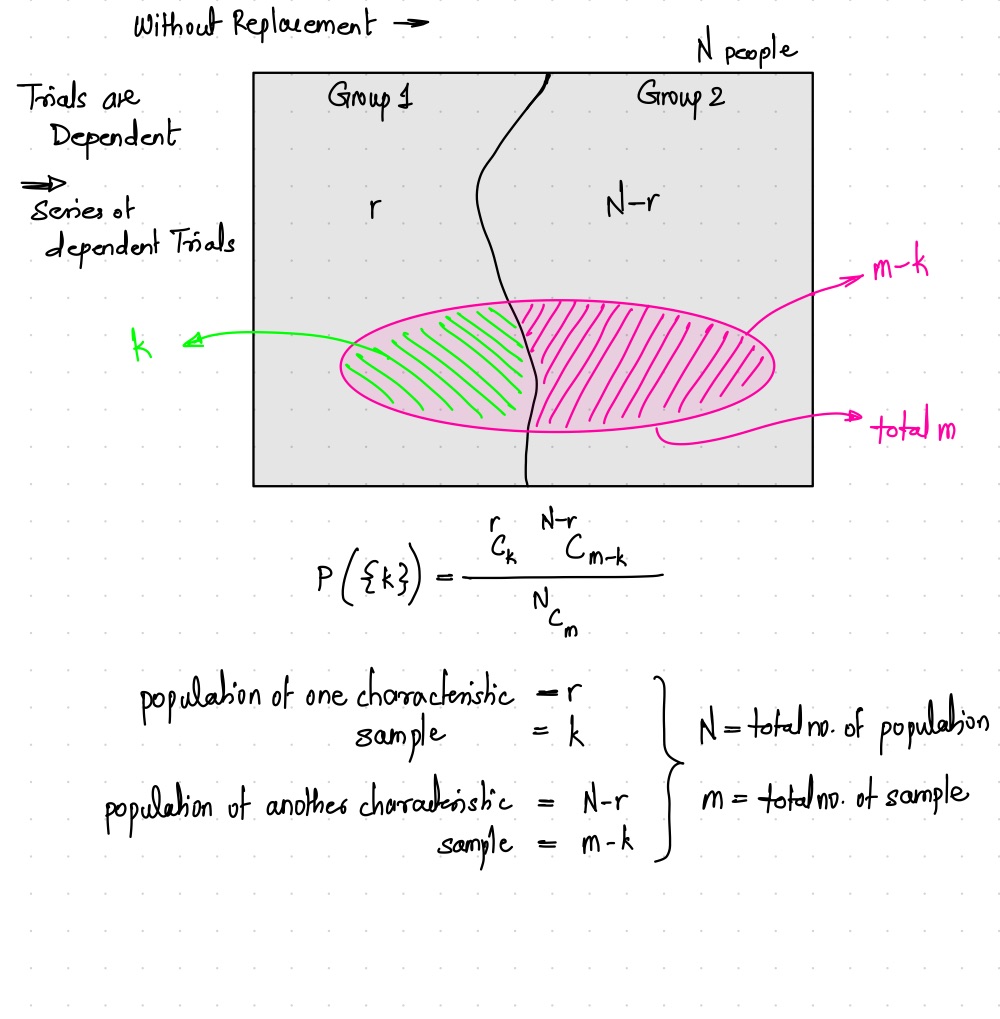 Without Replacement →
N people
Trials are
Dependent
⇒
Series of
dependent Trials
Group 1
Group 2
r
N-r
m-k
k
total m
P({k}) = (ʳCₖ ᴺ⁻ʳCₘ₋ₖ) / ᴺCₘ
population of one characteristic = r
sample = k
population of another characteristic = N-r
sample = m-k
N = total no. of population
m = total no. of sample